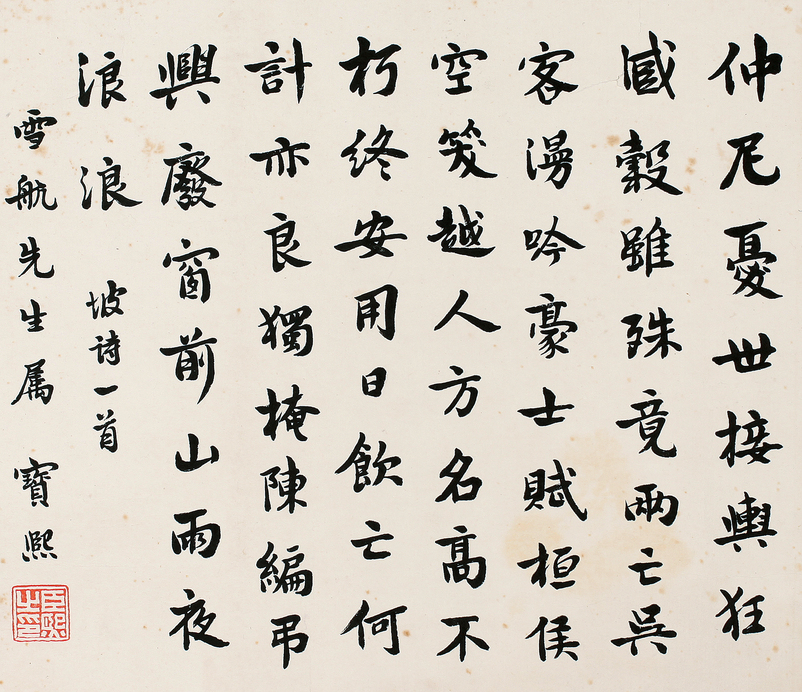 仲尼憂世接輿狂
臧穀雖殊竟兩亡吳
客漫吟豪士賦桓侯
空笑越人方名高不
朽終安用日飲亡何
計亦良獨掩陳編弔
興廢窗前山雨夜
浪浪
坡詩一首
雪航先生属 寶熙
臣熙之印